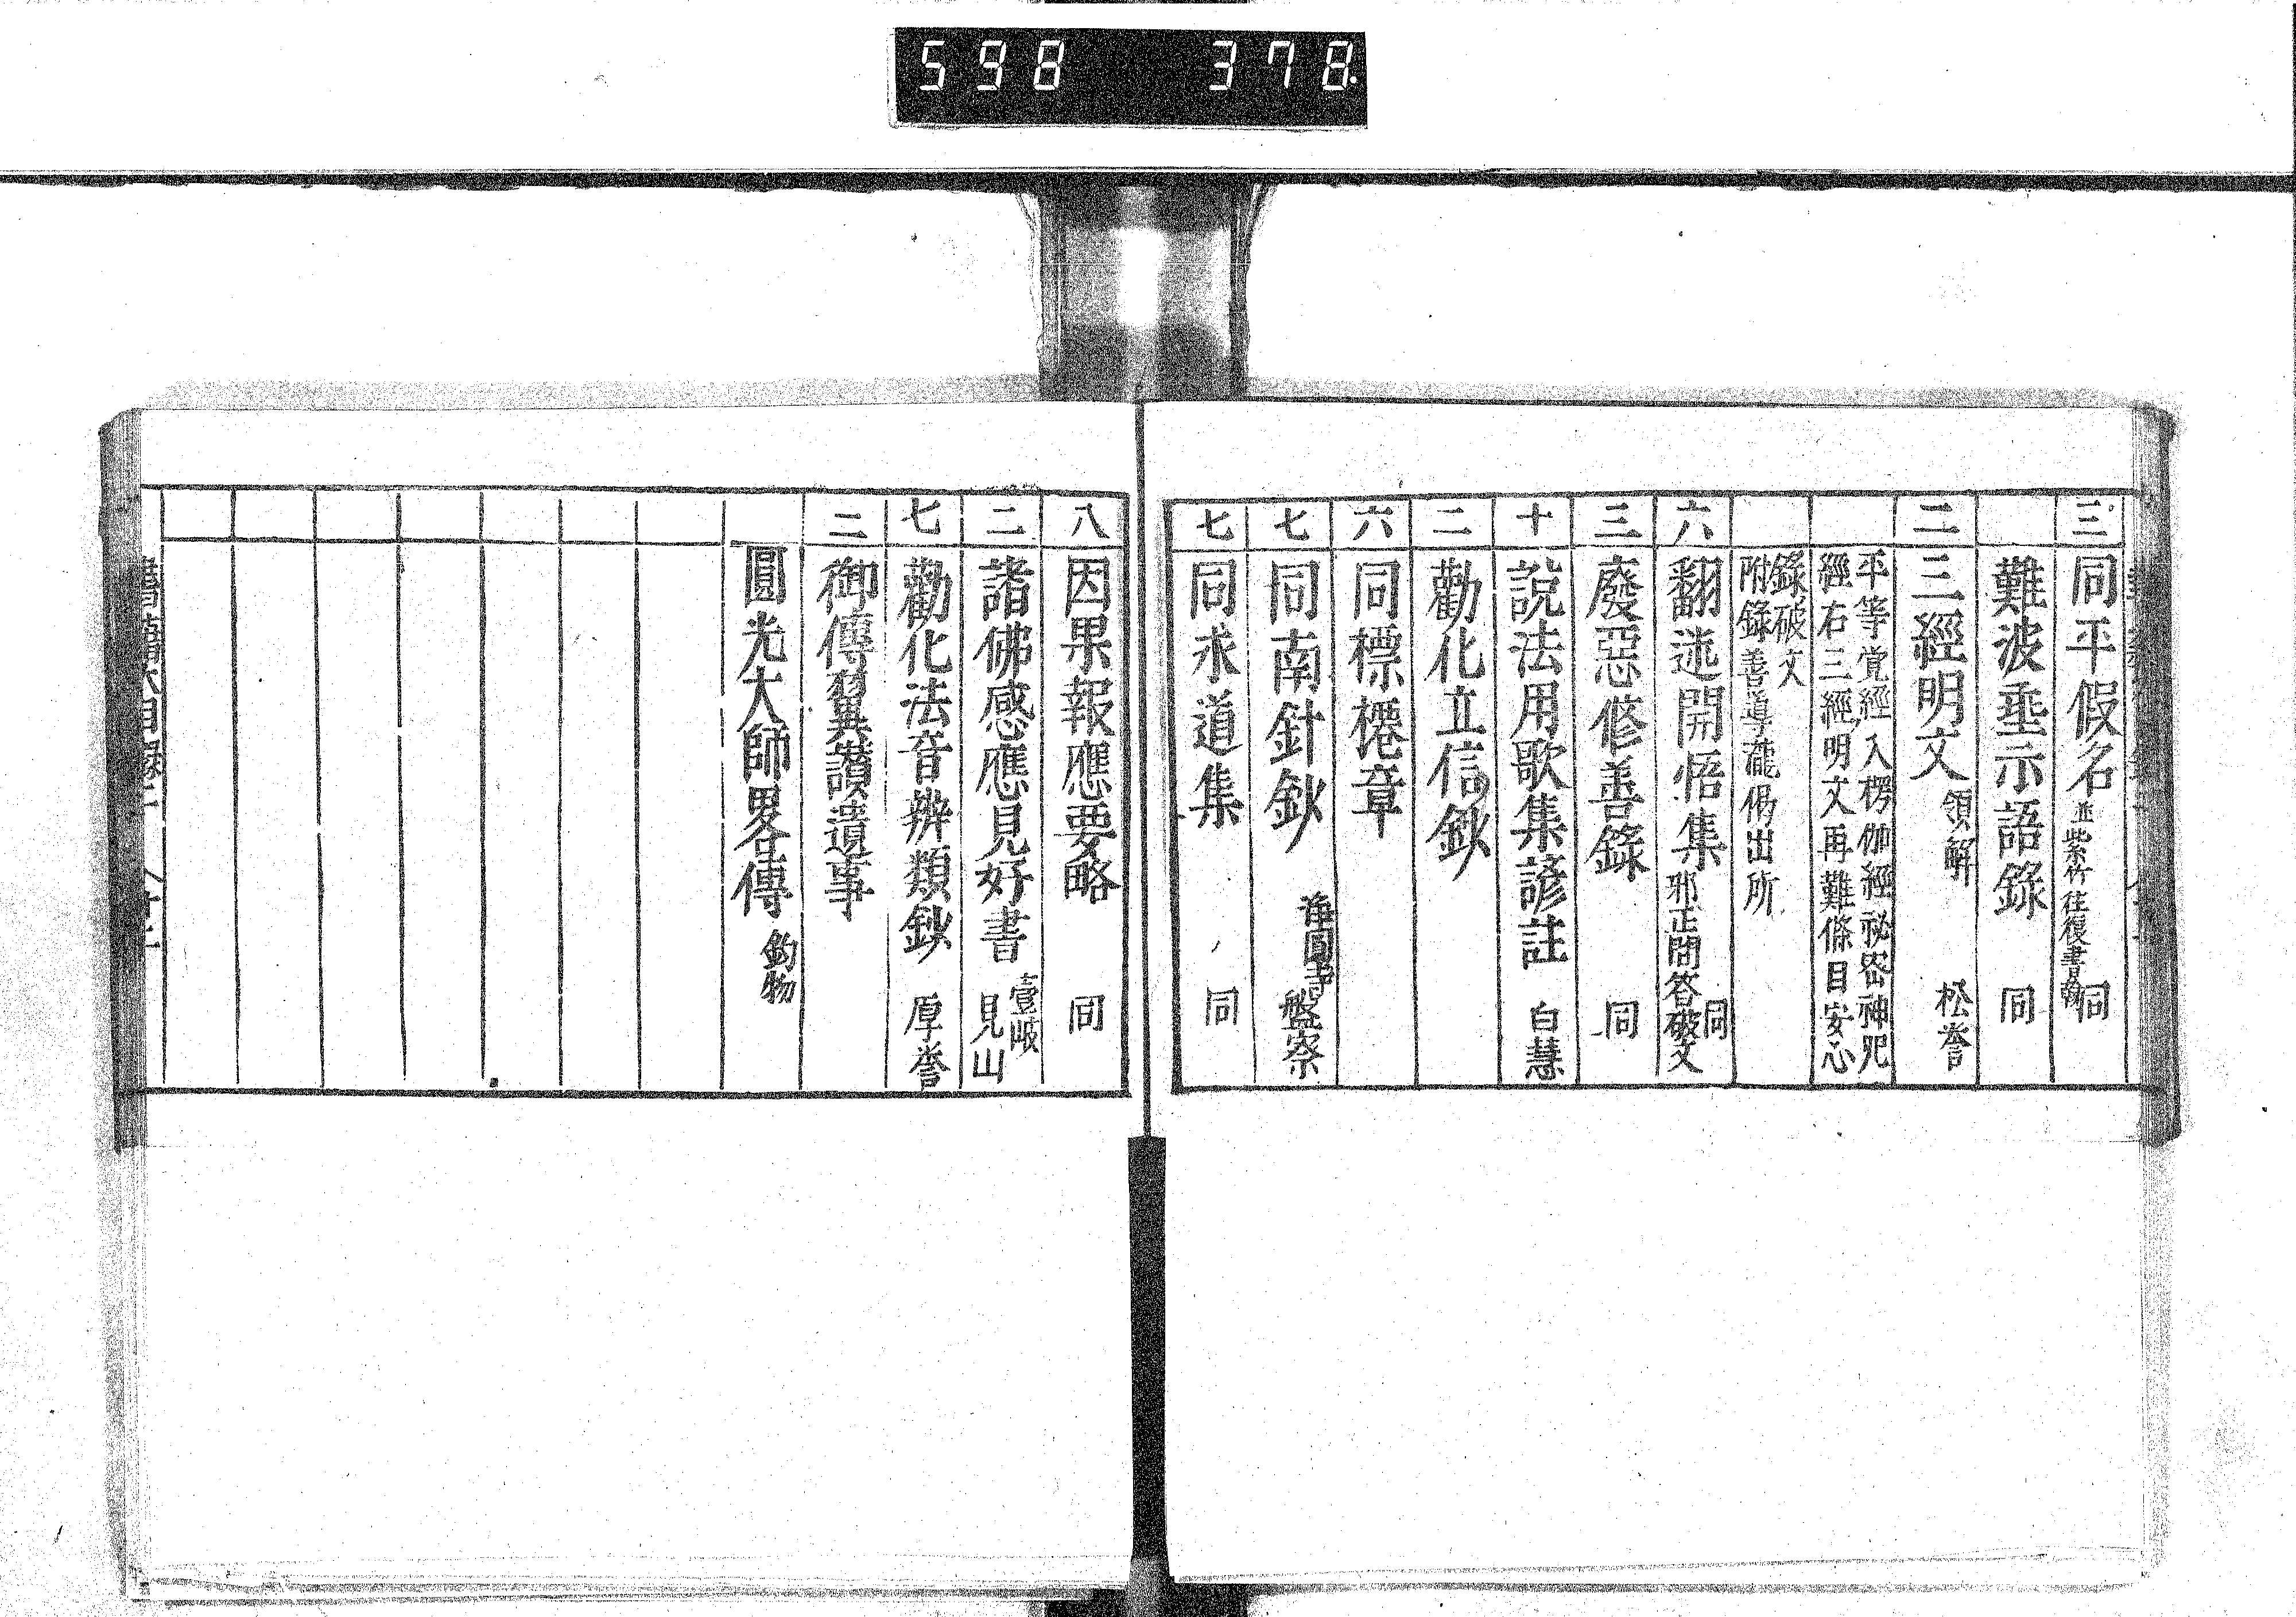 598 378
三 同平假名 並紫竹往復書翰 同
難波垂示語錄 同
二 三經明文 領解 松誉
平等覚經入楞伽經祕密神咒
經右三經明文再難條目安心
錄破文
附錄善導瀧偈出所
六 翻迷開悟集 邪正問答破文 同
三 廢惡修善錄 同
十 説法用歌集諺註 白慧
二 勸化立信鈔
六 同標𣖾章
七 同南針鈔 浄圓寺 盤察
七 同求道集 同
八 因果報應要略 同
二 諸佛感應見好書 壹岐 見山
七 勸化法音辨類鈔 厚誉
二 御傳翼讃遺事
圓光大師畧傳 鈞物